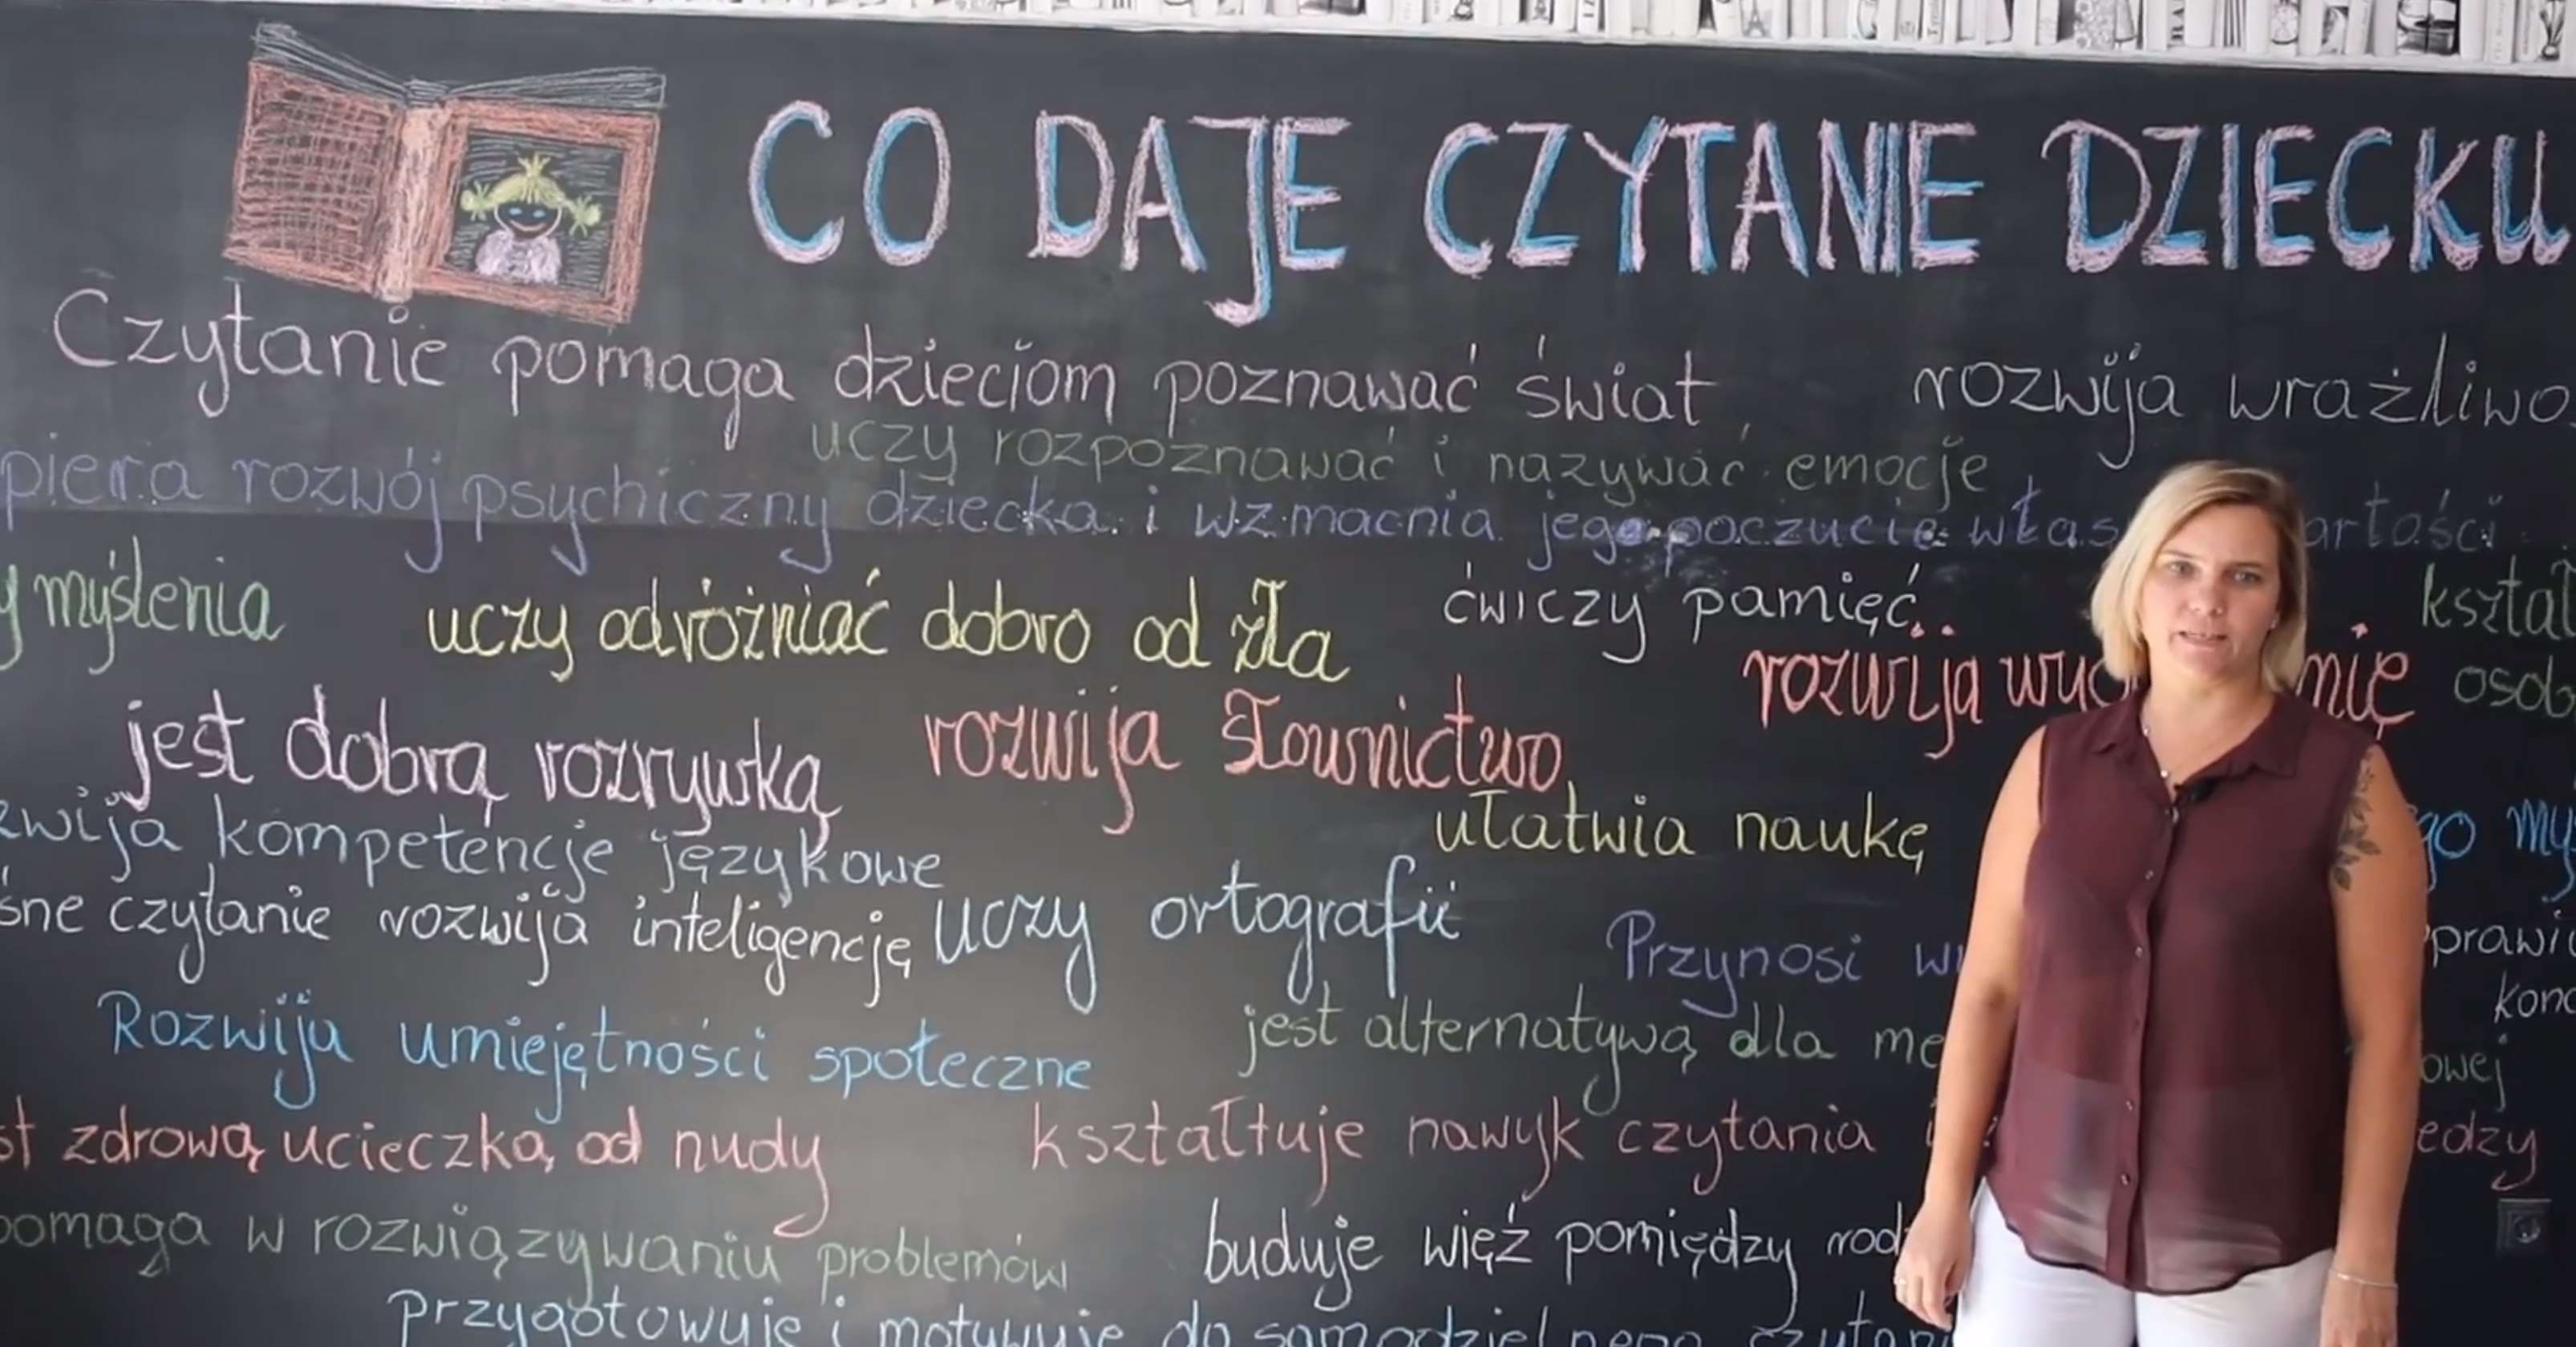 CO DAJE CZYTANIE DZIECKU
Czytanie pomaga dzieciom poznawać świat,
rozwija
uczy rozpoznawać i nazywać emocje
rozwój psychiczny dziecka i wzmacnia jego poczucie
myślenia
uczy odróżniać dobro od zła
ćwiczy pamięć
rozwija
jest dobrą rozrywką
rozwija słownictwo
kompetencje językowe
ułatwia naukę
czytanie rozwija inteligencję
uczy ortografii
Przynosi
Rozwija umiejętności społeczne
jest alternatywą dla
zdrową ucieczką od nudy
kształtuje nawyk czytania
w rozwiązywaniu problemów
buduje więź pomiędzy
przygotowuje i motywuje do samodzielnego